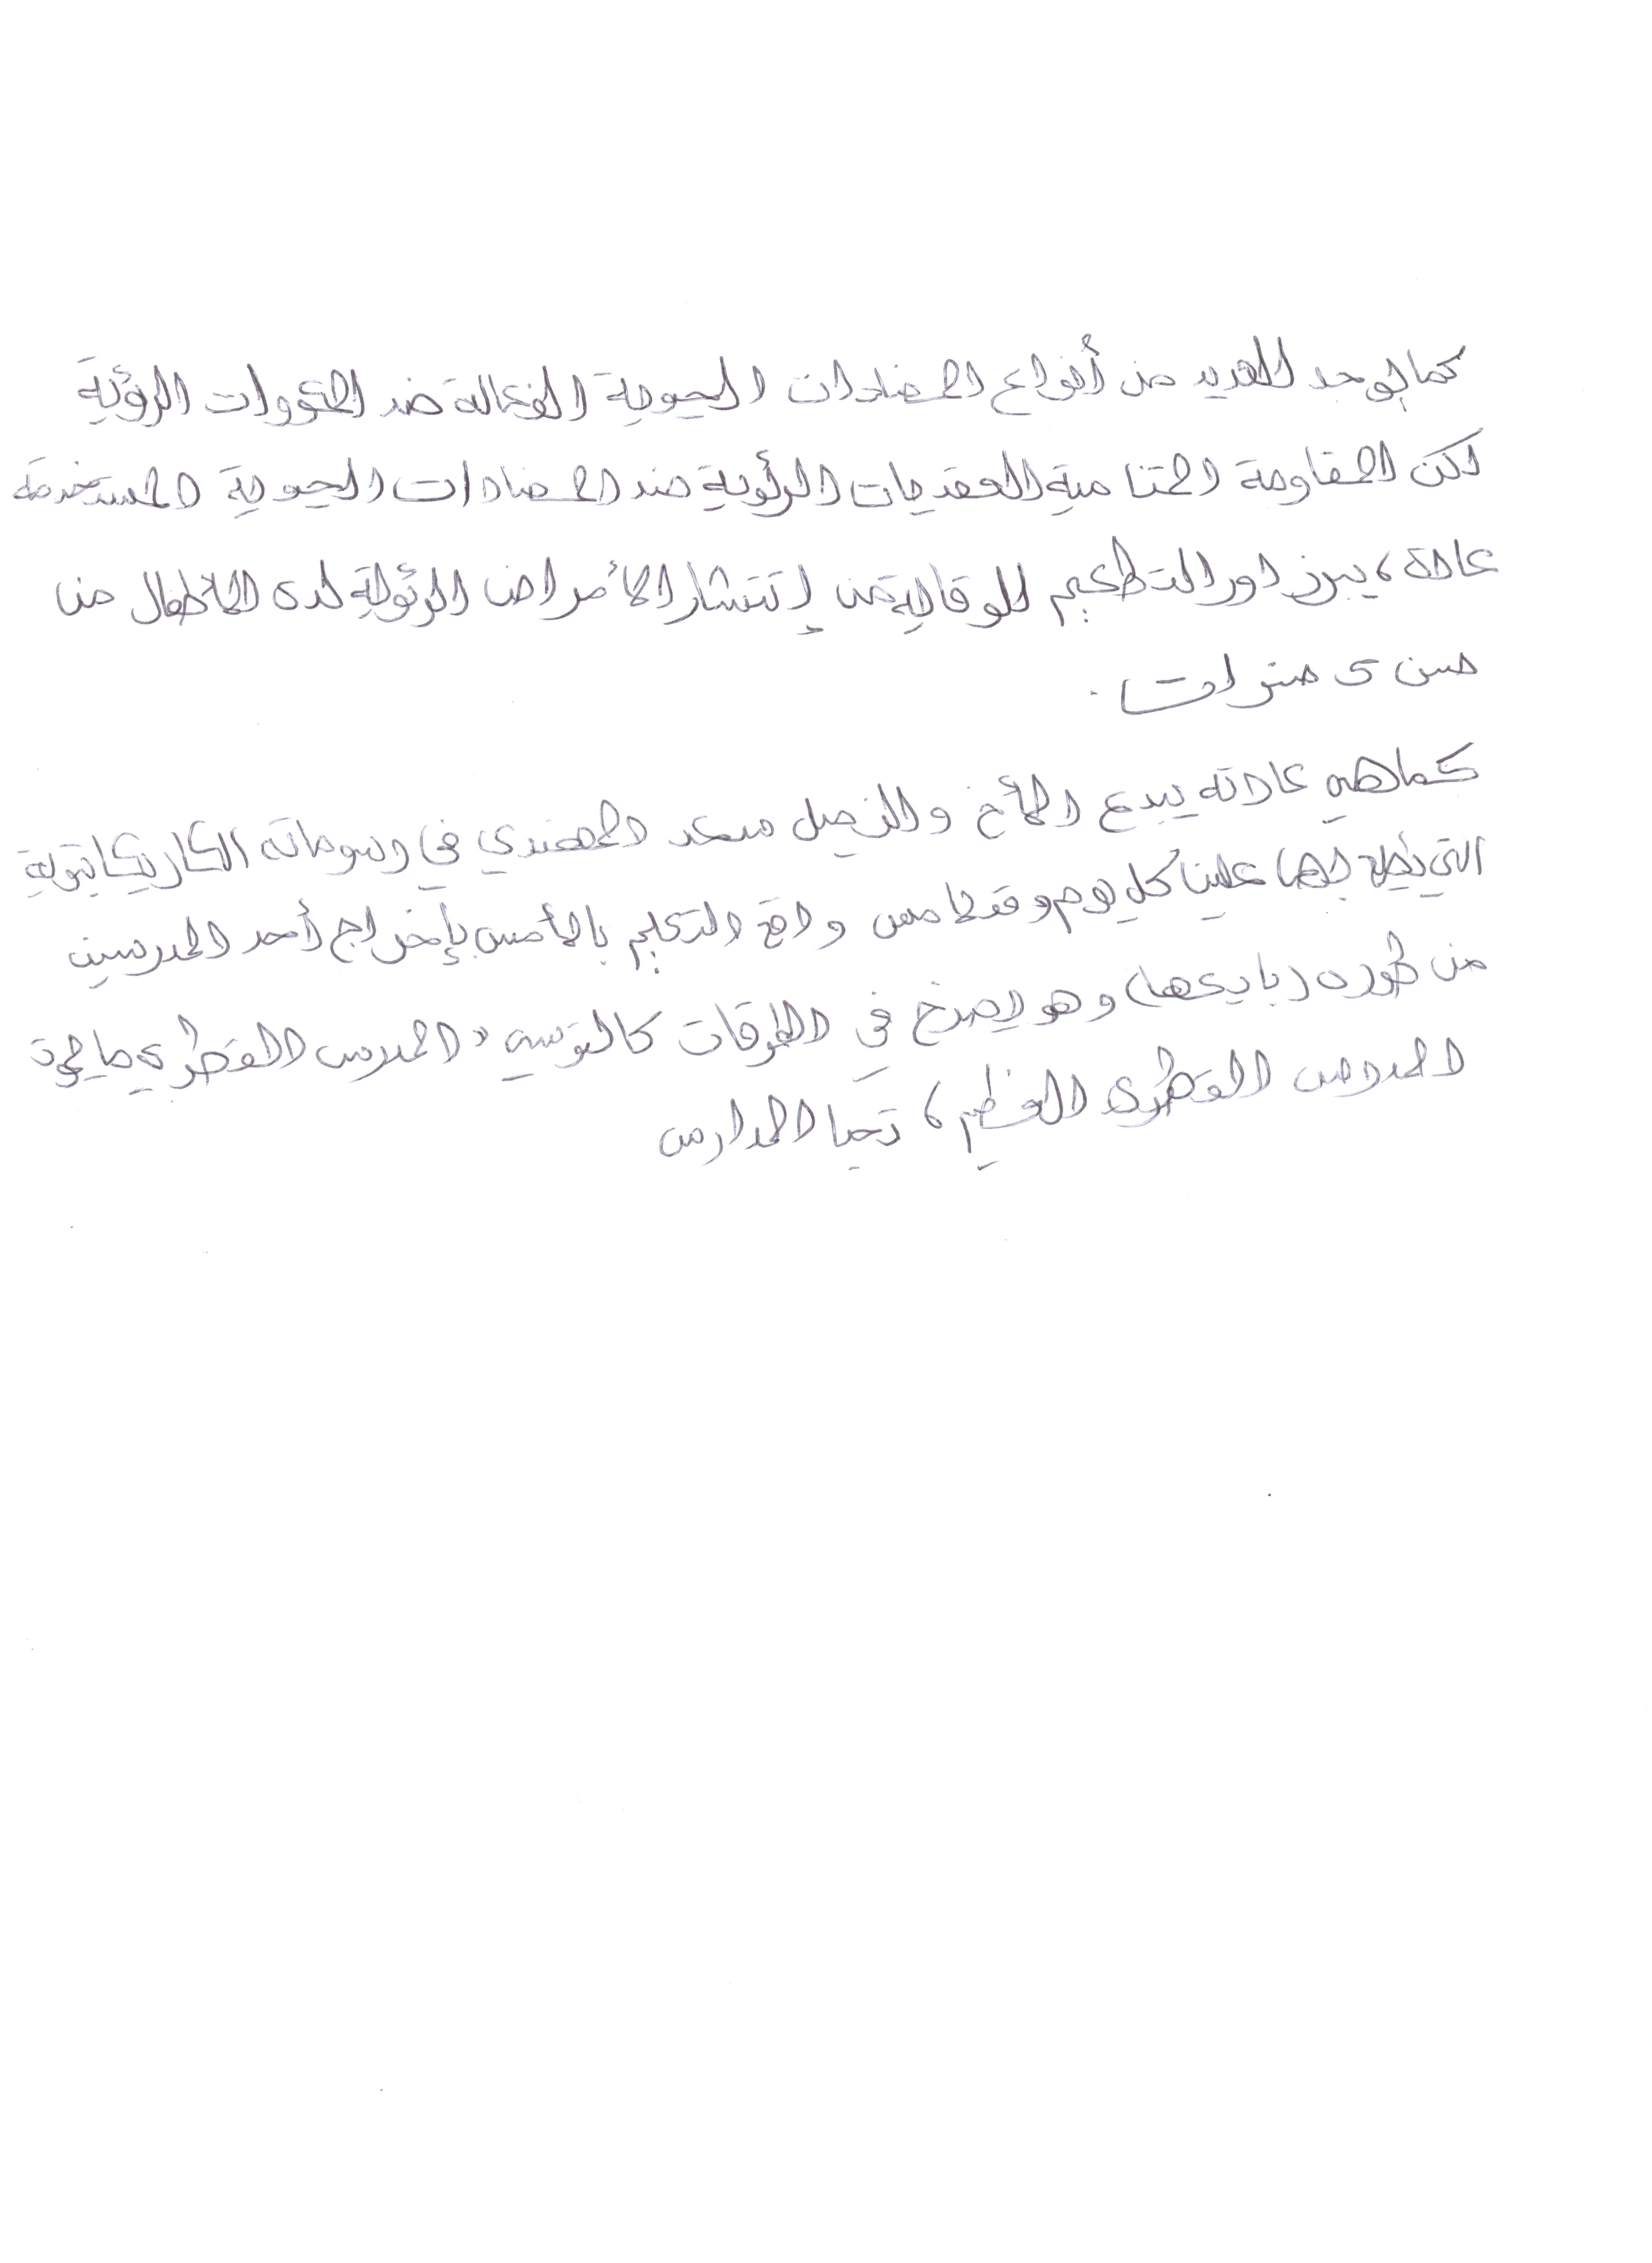 كما يوجد العديد من أنواع المضادات الحيوية الفعالة ضد المكورات الرئوية
لكن المقاومة المتنامية العقديات الرئوية ضد المضادات الحيوية المستخدمة
عادة، يبرز دور التطعيم للوقاية من إنتشار الأمراض الرئوية لدى الأطفال من
سن ى سنوات.
كما هي عادته يبدع الأخ والزميل سعد المهندي في رسوماته الكاريكاتيرية
التي يطل بها علينا كل يوم وقد لامس واقع التعليم بالأمس بإخراج أحد المدرسين
من طوره (باديها) وهو يصرخ في الطرقات كالتوسي "المدرس القطري ما يموت
المدرس القطري العظيم، تحيا المدارس